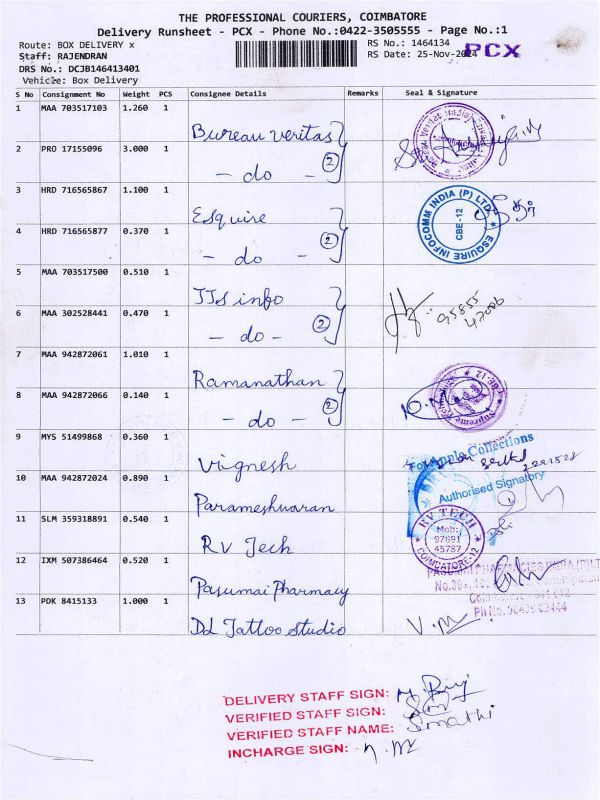 THE PROFESSIONAL COURIERS, COIMBATORE
Delivery Runsheet - PCX - Phone No.:0422-3505555 - Page No.:1
Route: BOX DELIVERY x
RS No.: 1464134
Staff: RAJENDRAN
RS Date: 25-Nov-2024
PCX
DRS No.: DCJB146413401
Vehicle: Box Delivery
S No Consignment No Weight PCS Consignee Details Remarks Seal & Signature
1 MAA 703517103 1.260 1 Bureau veritas
2 PRO 17155096 3.000 1 - do - 2
3 HRD 716565867 1.100 1 Esquire
ESQUIRE INFOCOMM INDIA (P) LTD. CBE-12
4 HRD 716565877 0.370 1 - do - 2
5 MAA 703517500 0.510 1 JJS info
6 MAA 302528441 0.470 1 - do - 2
95855
47006
7 MAA 942872061 1.010 1 Ramanathan
8 MAA 942872066 0.140 1 - do - 2
Supreme
9 MYS 51499868 0.360 1 Vignesh
For Apple Collections
10 MAA 942872024 0.890 1 Parameshwaran
Authorised Signatory
11 SLM 359318891 0.540 1 RV Tech
RV TECH
Mob:
97891
45787
COIMBATORE-12
12 IXM 507386464 0.520 1 Pasumai Pharmacy
13 PDK 8415133 1.000 1 DL Tattoo studio
V.M
DELIVERY STAFF SIGN:
VERIFIED STAFF SIGN:
VERIFIED STAFF NAME: Sumathi
INCHARGE SIGN: